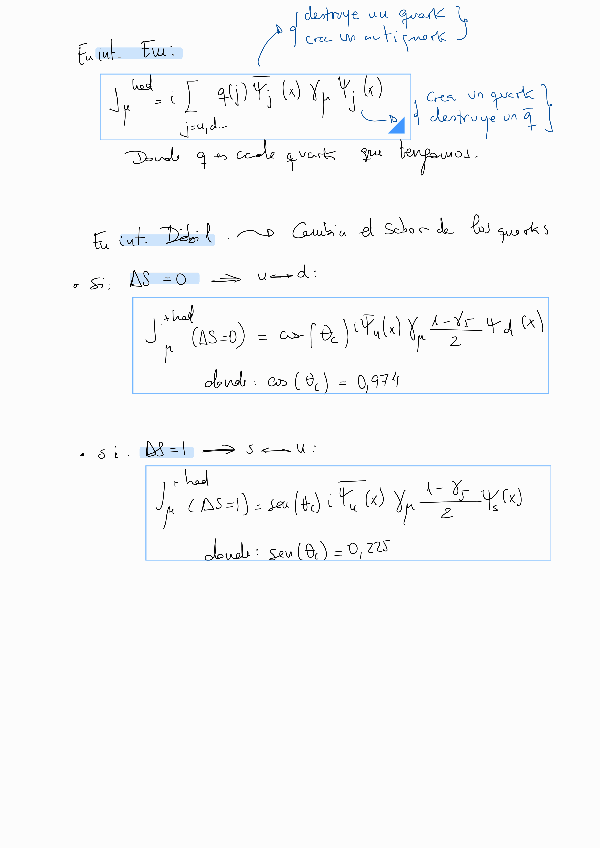 destruye un quark
crea un antiquark
En int. Em:
J_μ^had = i Σ_{j=u,d...} q(j) Ψ̄_j (x) γ_μ Ψ_j (x)
crea un quark
destruye un q̄
Donde q es cada quark que tengamos.
En int. Débil. ⇝ Cambia el sabor de los quarks
• Si: ΔS = 0 ⟹ u ↔ d:
J_μ^{+had} (ΔS=0) = cos(θ_c) i Ψ̄_u(x) γ_μ (1-γ_5)/2 Ψ_d (x)
donde: cos(θ_c) = 0,974
• si: ΔS=1 ⟶ s ↔ u:
J_μ^{+had} (ΔS=1) = sen(θ_c) i Ψ̄_u (x) γ_μ (1-γ_5)/2 Ψ_s(x)
donde: sen(θ_c) = 0,225